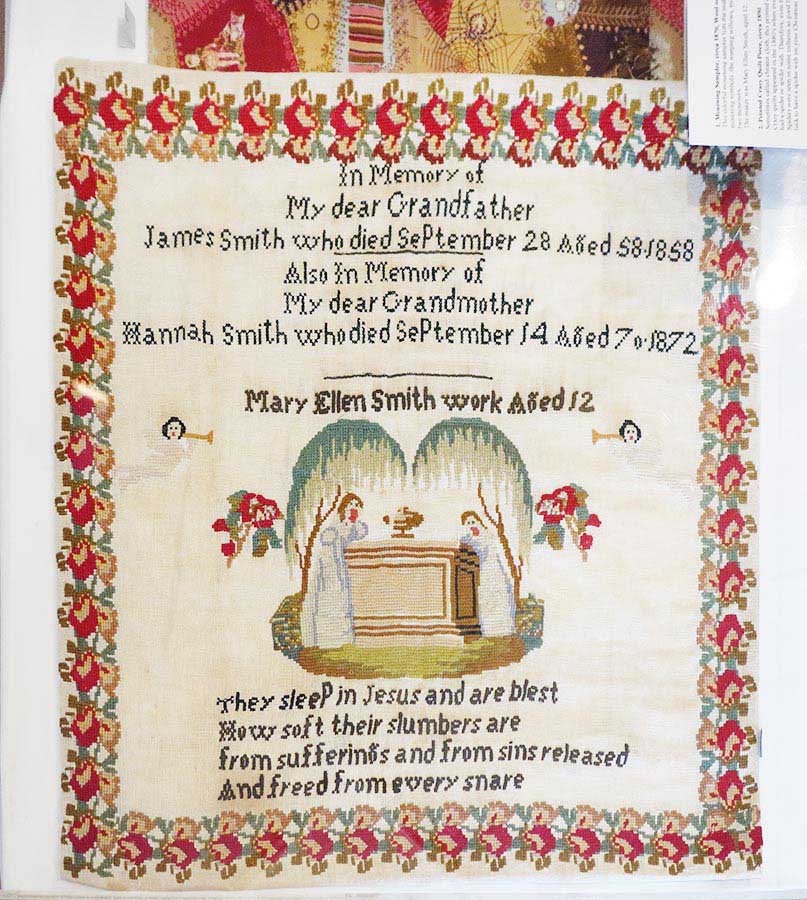 In Memory of
My dear Grandfather
James Smith who died September 28 Aged 58·1858
Also In Memory of
My dear Grandmother
Hannah Smith who died September 14 Aged 70·1872
Mary Ellen Smith work Aged 12
They sleep in Jesus and are blest
How soft their slumbers are
from sufferings and from sins released
And freed from every snare
1. Mourning Sampler, circa 1870.